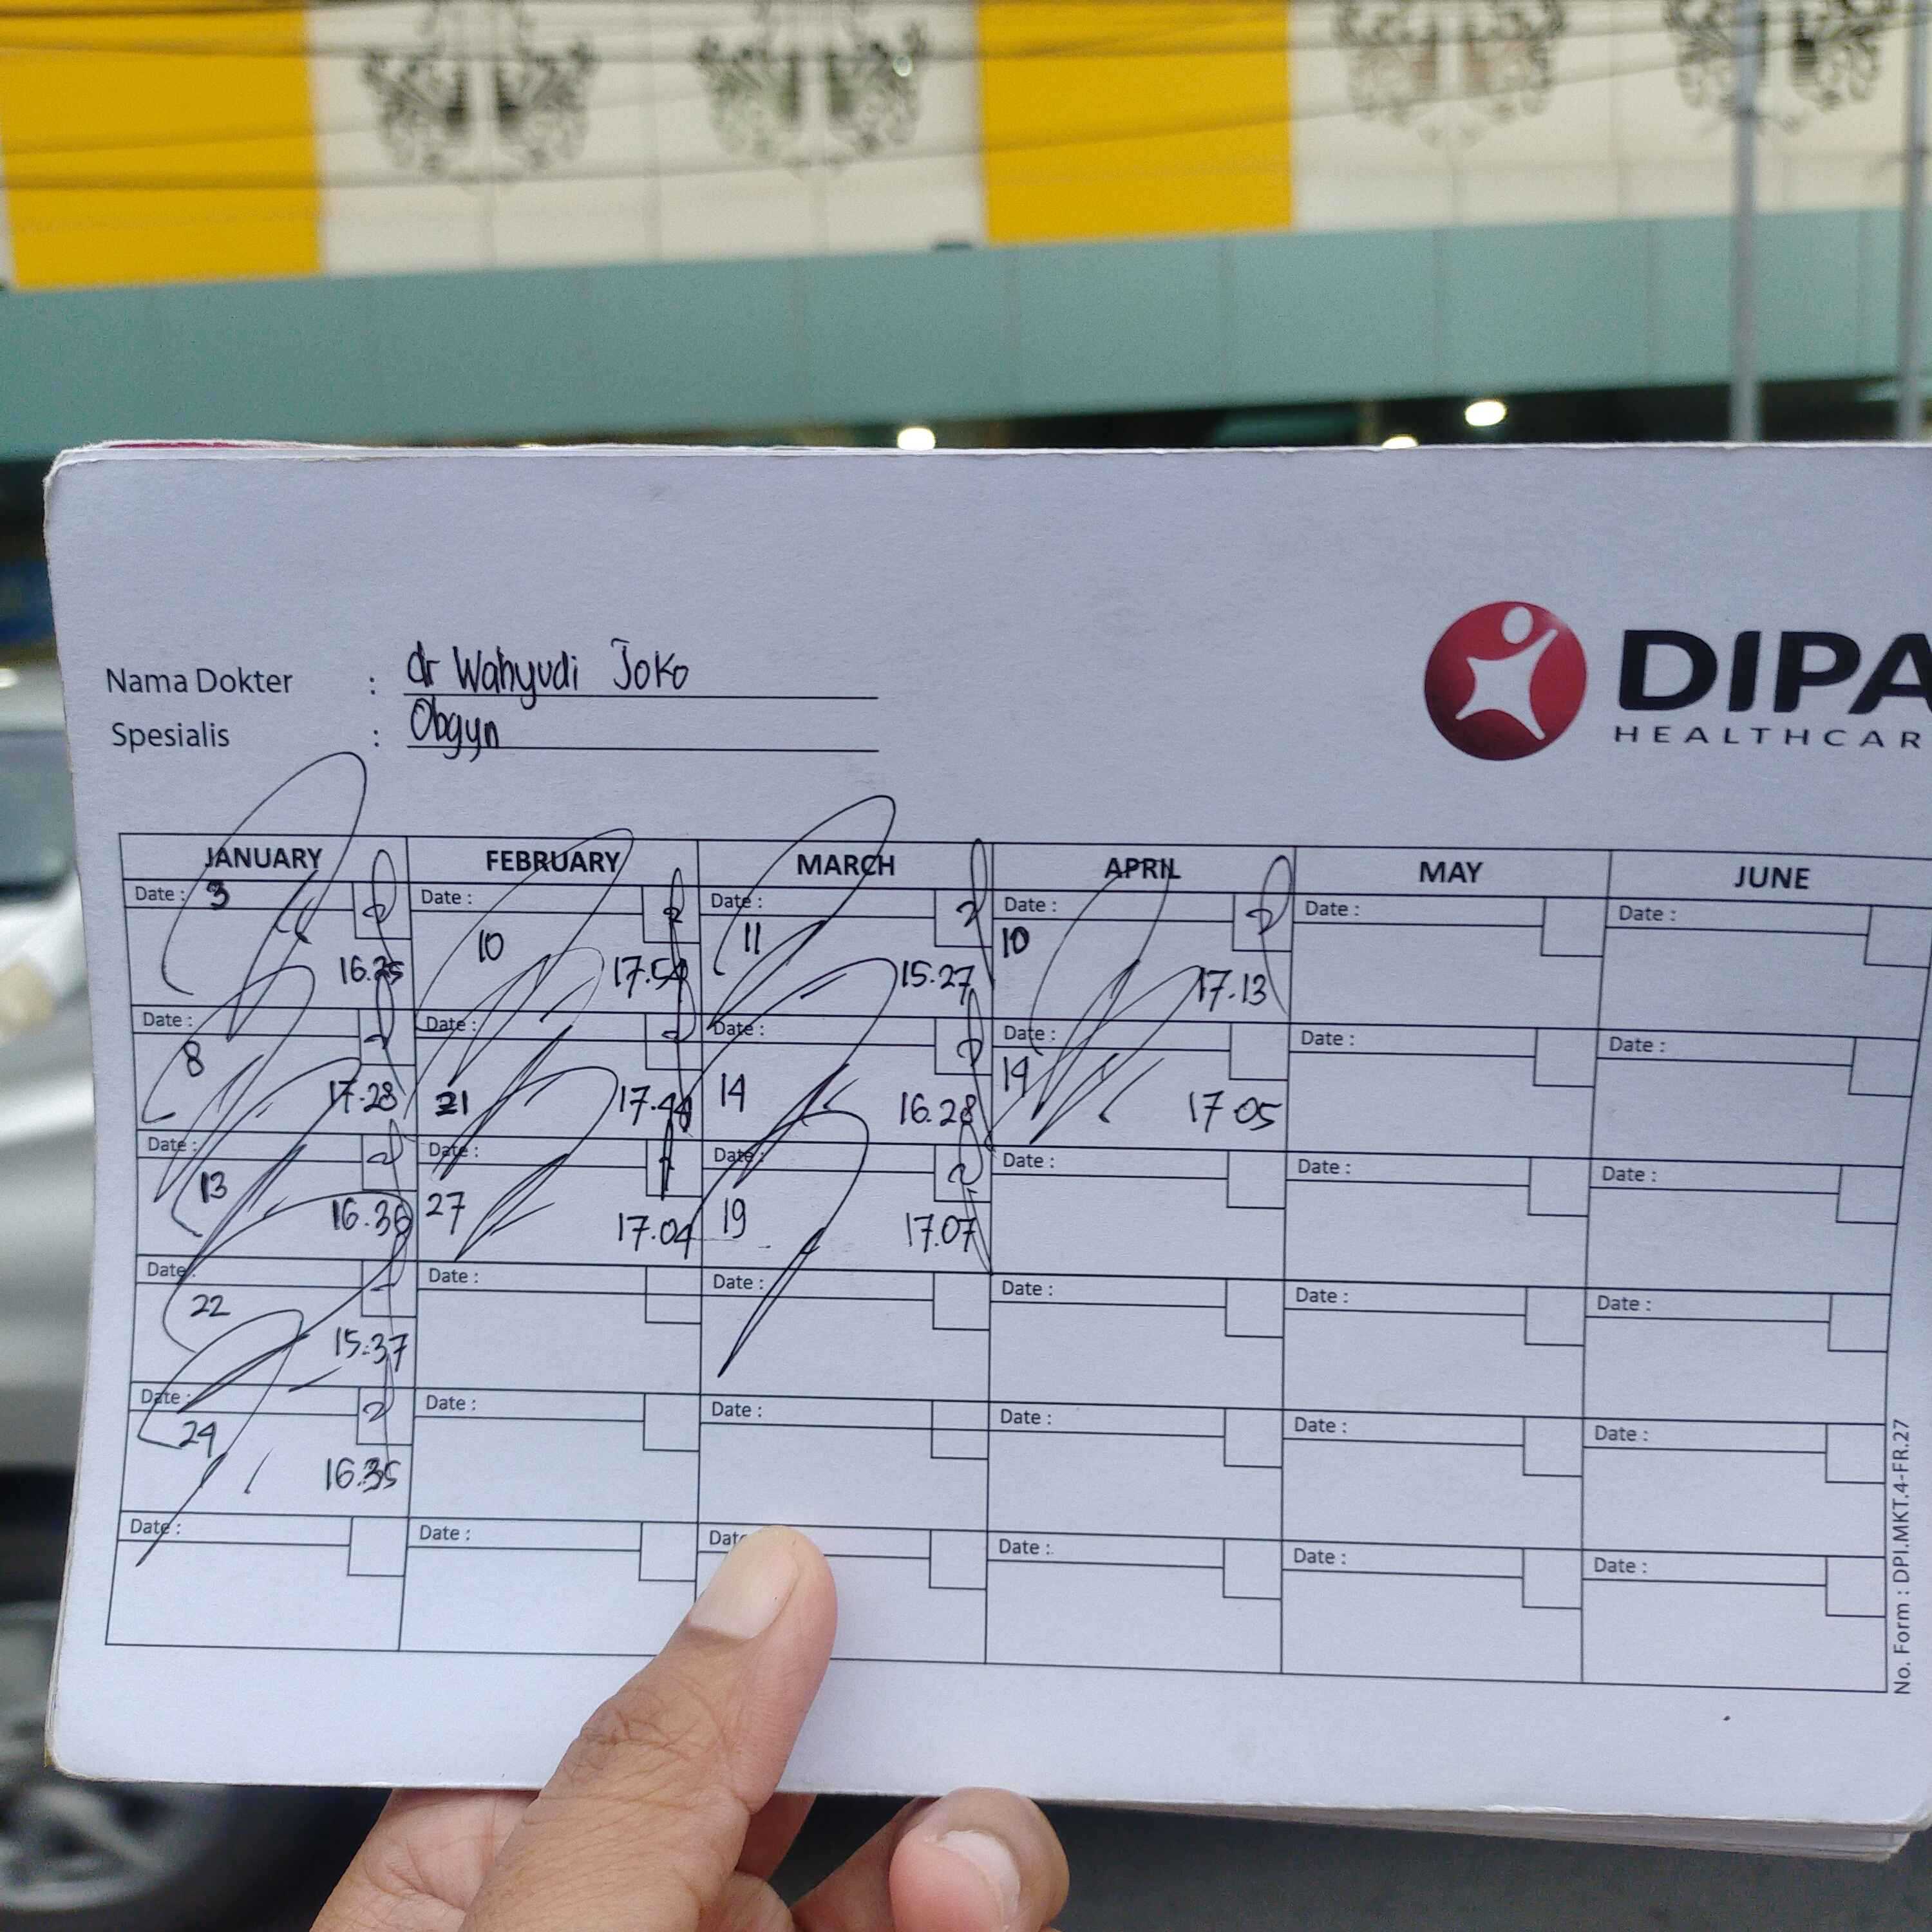 Nama Dokter : dr Wahyudi Joko
Spesialis : Obgyn
DIPA
HEALTHCAR
JANUARY FEBRUARY MARCH APRIL MAY JUNE
Date : 3 Date : Date : Date : Date : Date :
10 11 10
16.25 17.54 15.27 17.13
Date : Date : Date : Date : Date : Date :
8 21 14 14
17.28 17.44 16.28 17.05
Date : Date : Date : Date : Date : Date :
13 27 19
16.36 17.04 17.07
Date : Date : Date : Date : Date : Date :
22
15.37
Date : Date : Date : Date : Date : Date :
24
16.35
Date : Date : Date : Date : Date :
No. Form : DPI.MKT.4-FR.27